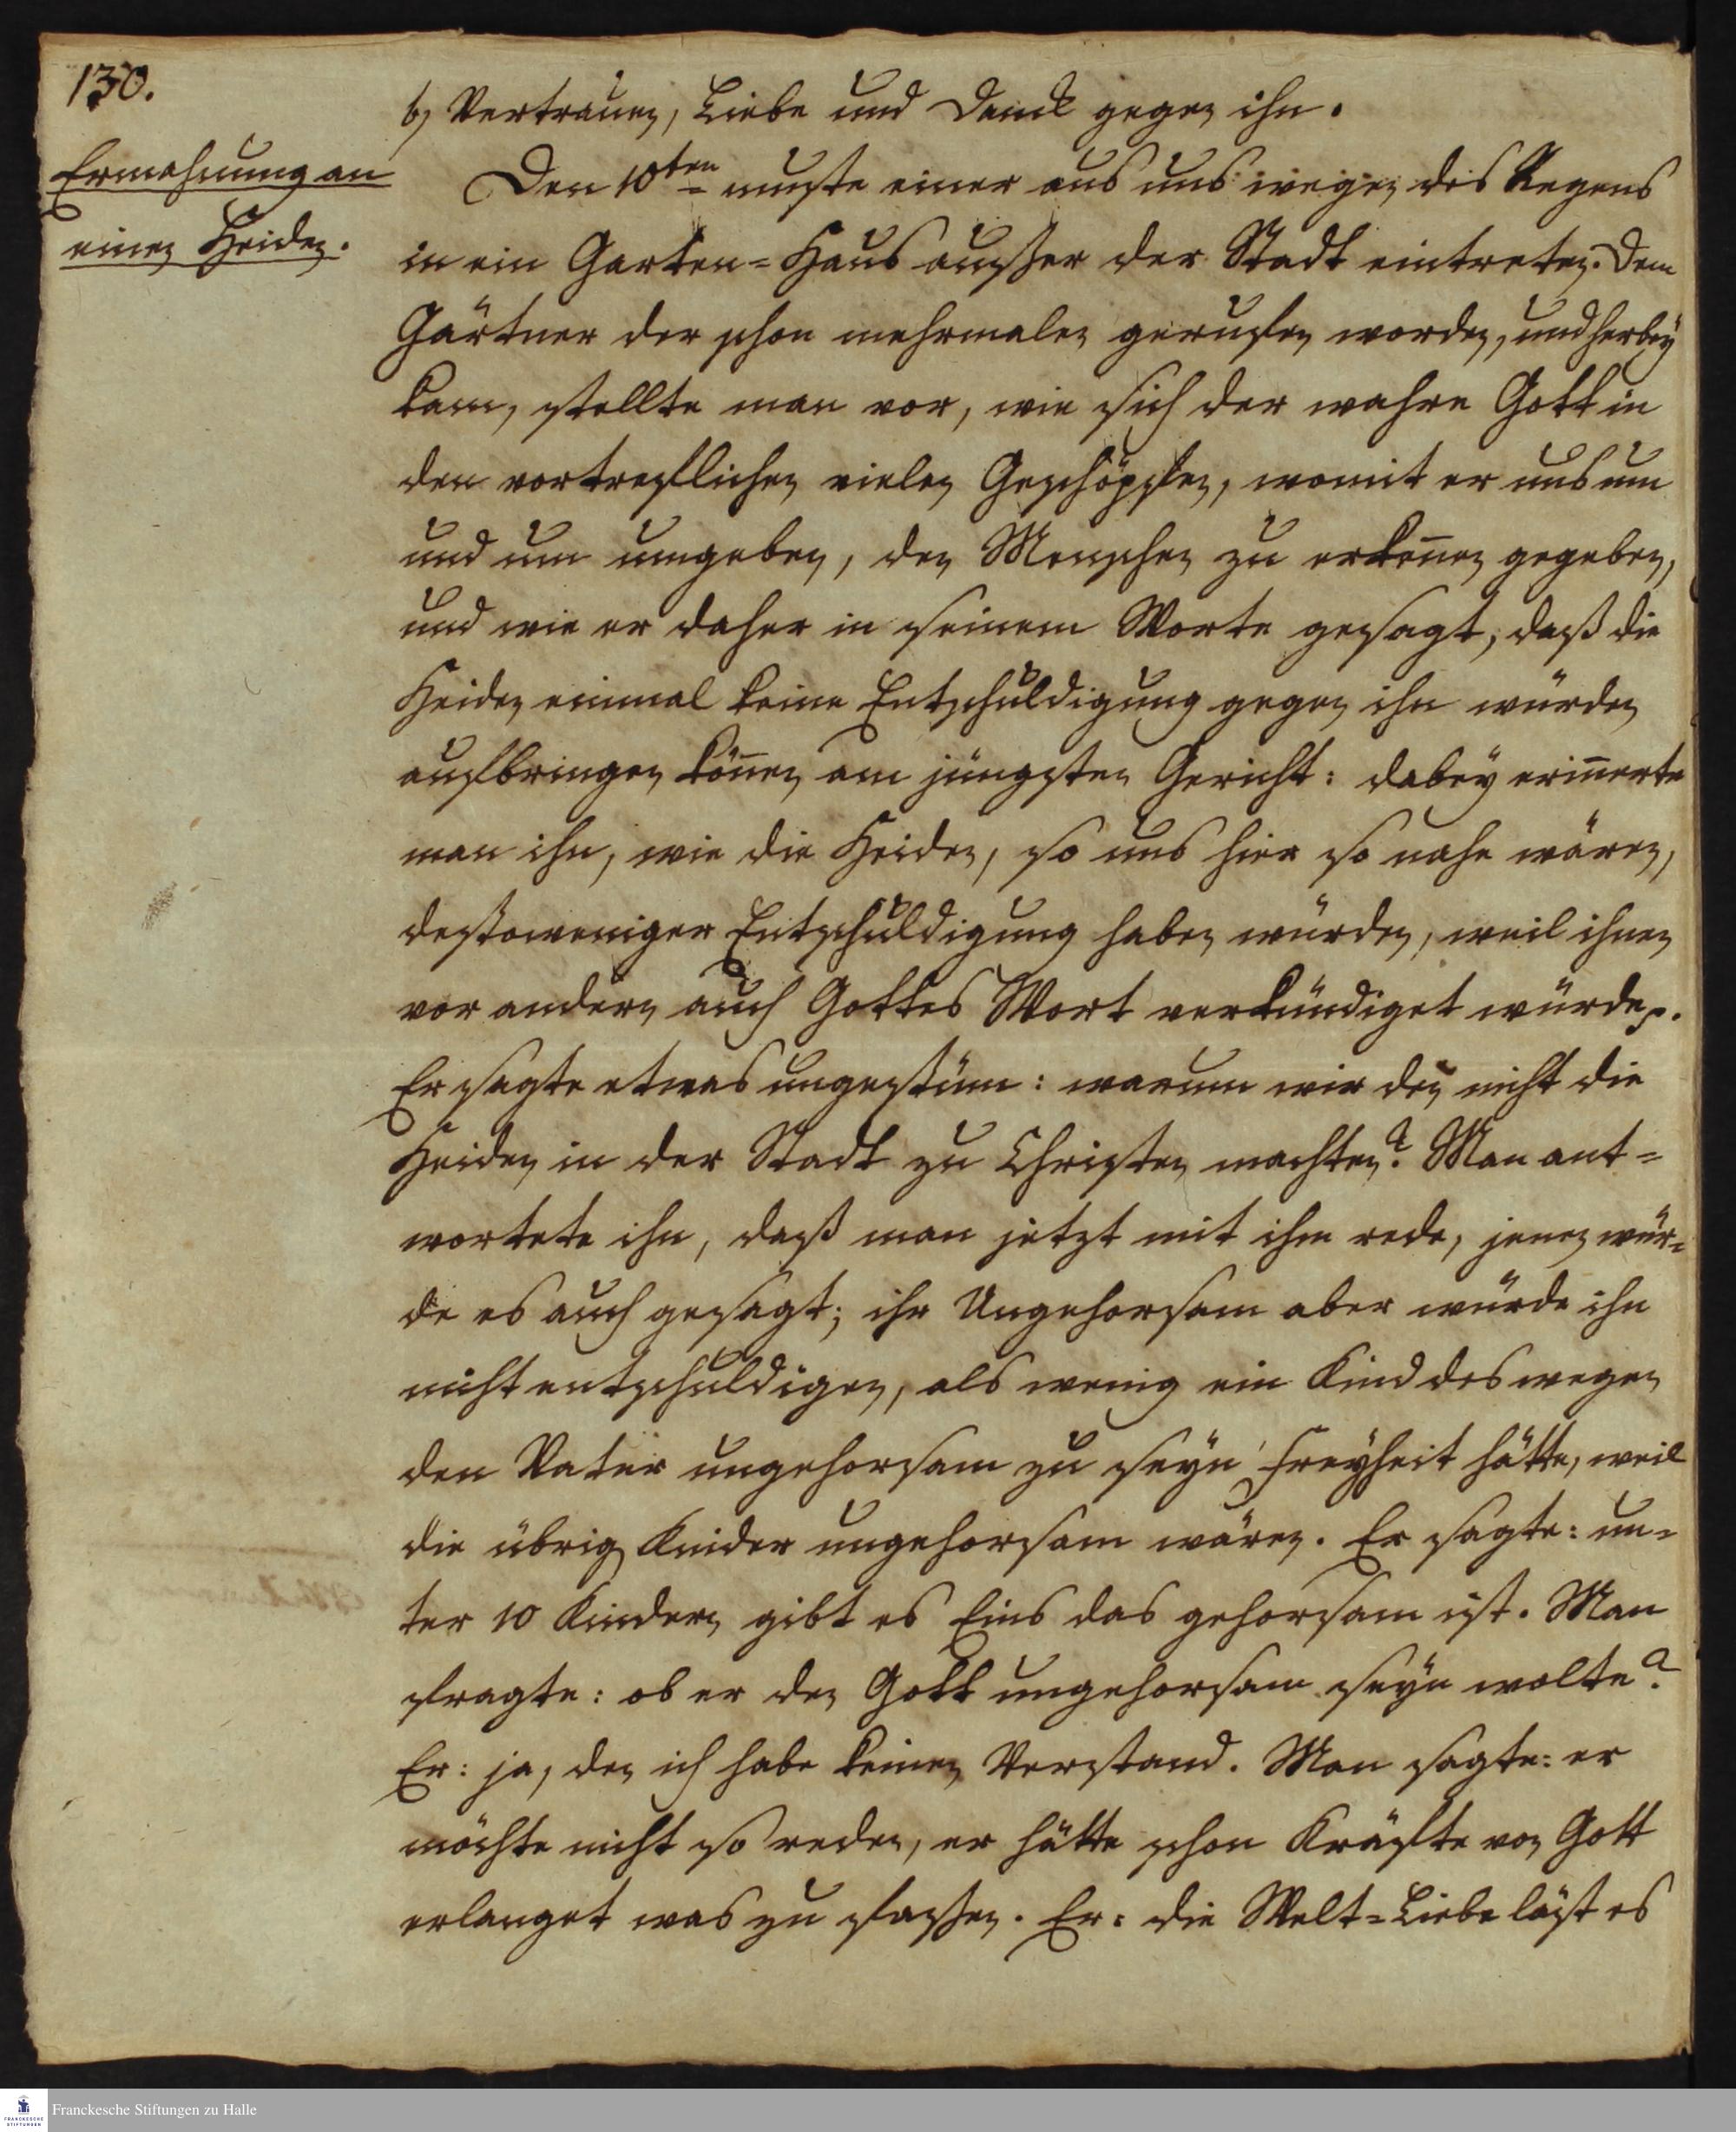 130.
Ermahnung an
einen Heiden.
b) Vertrauen, Liebe und Danck gegen ihn.
Den 10ten muste einer aus uns wegen des Regens
in ein Garten-Haus ausser der Stadt eintreten. Dem
Gärtner der schon mehrmalen geruffen worden, und herbey
kam, stellte man vor, wie sich der wahre Gott in
den vortreflichen vielen Geschöpfen, womit er uns um
und um umgeben, den Menschen zu erkeñen gegeben,
und wie er daher in seinem Worte gesagt, daß die
Heiden einmal keine Entschuldigung gegen ihn würden
aufbringen köñen am jüngsten Gericht: dabey eriñerte
man ihn, wie die Heiden, so uns hier so nahe wären,
destoweniger Entschuldigung haben würden, weil ihnen
vor andern auch Gottes Wort verkündiget würde.
Er sagte etwas ungestüm: warum wir deñ nicht die
Heiden in der Stadt zu Christen machten? Man ant-
wortete ihn, daß man jetzt mit ihm rede, jenen wür-
de es auch gesagt; ihr Ungehorsam aber würde ihn
nicht entschuldigen, als wenig ein Kind deswegen
den Vater ungehorsam zu seyn Freyheit hätte, weil
die übrig Kinder ungehorsam wären. Er sagte: un-
ter 10 Kindern gibt es Eins das gehorsam ist. Man
fragte: ob er den Gott ungehorsam seyn wolte?
Er: ja, den ich habe keinen Verstand. Man sagte: er
möchte nicht so reden, er hätte schon Kräfte von Gott
erlanget was zu fassen. Er: die Welt-Liebe läst es
Franckesche Stiftungen zu Halle